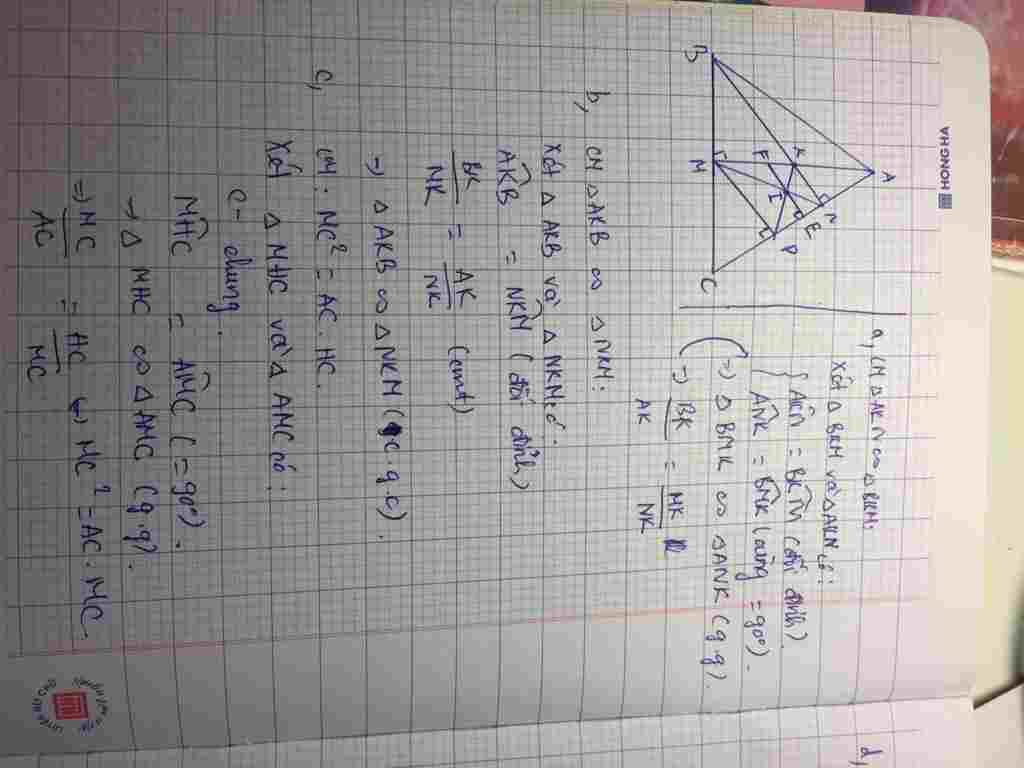 HONG HA
A
N
E
P
K
F
I
B
M
C
a, CM △AKN ∽ △BKM:
Xét △ BKM và △AKN có:
AKN = BKM (đối đỉnh).
ANK = BMK (cùng = 90°).
=> △ BMK ∽ △ANK (g.g).
=> BK/AK = MK/NK
b, CM △AKB ∽ △NKM:
Xét △ AKB và △ NKM có:
AKB = NKM (đối đỉnh)
BK/NK = AK/NK (cmt)
=> △ AKB ∽ △NKM (c.g.c).
c, CM: MC² = AC. HC.
Xét △ MHC và △ AMC có:
C - chung.
MHC = AMC (= 90°).
→ △ MHC ∽ △AMC (g.g).
=> MC/AC = HC/MC ↔ MC² = AC. MC
d,